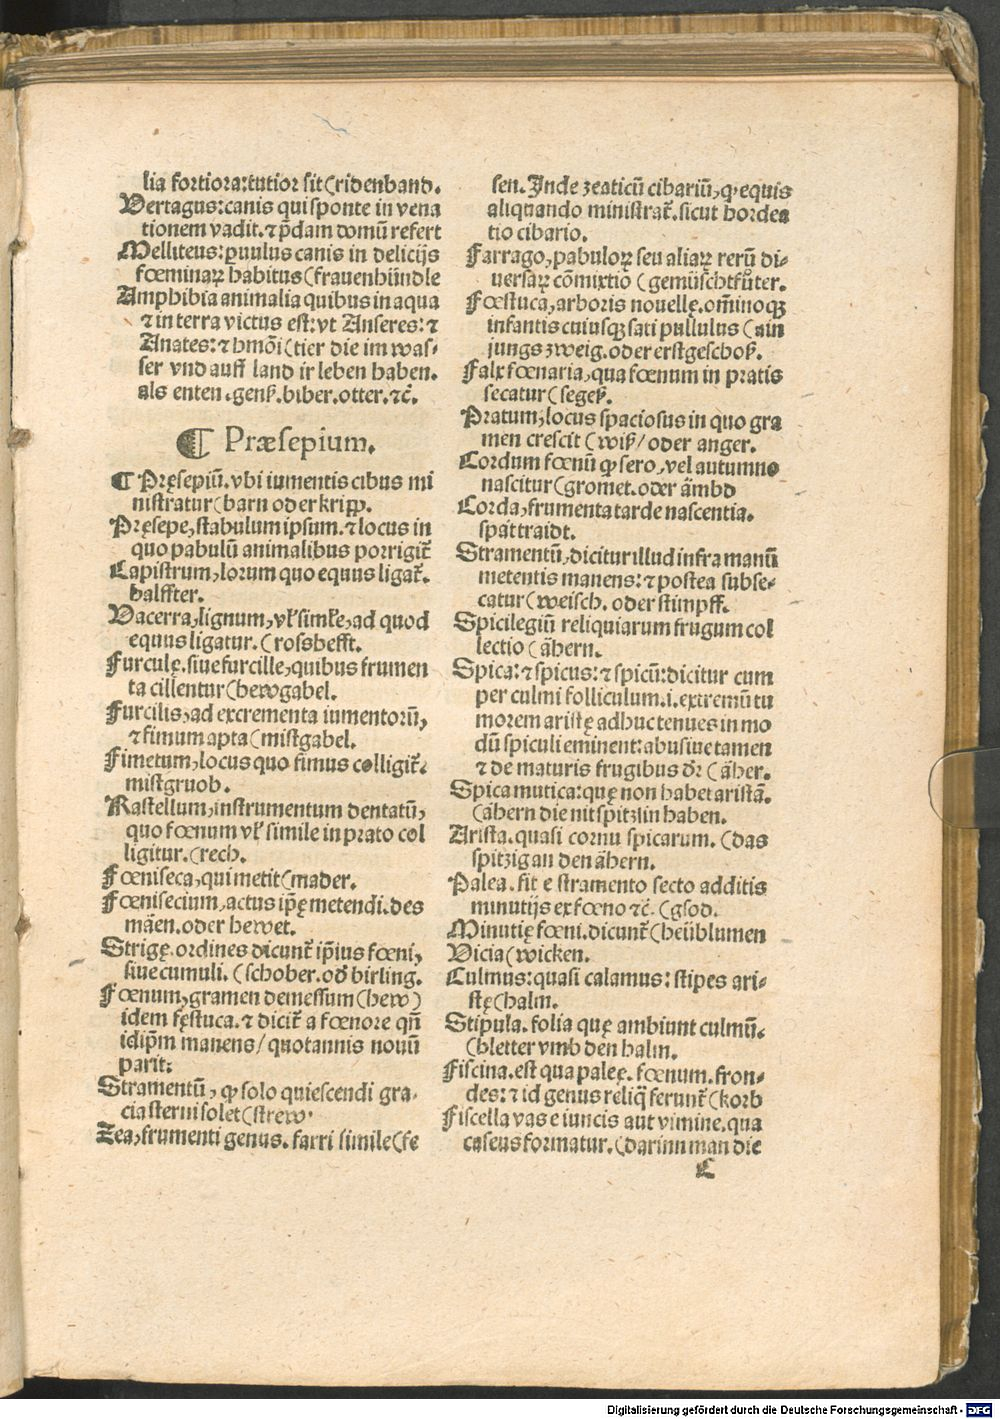 lia fortiora: tutior sit (ridenband.
Vertagus: canis qui sponte in vena
tionem vadit. ⁊ p̄dam domū refert
Melliteus: puulus canis in delicijs
fœminaꝝ habitus (frauenhündle
Amphibia animalia quibus in aqua
⁊ in terra victus est: vt Anseres: ⁊
Anates: ⁊ hmōi (tier die im was-
ser vnd auff land ir leben haben.
als enten. genß. biber. otter. ⁊č.
¶ Præsepium.
¶ Pręsepiū. vbi iumentis cibus mi
nistratur (barn oder kripp.
Pręsepe, stabulum ipsum. ⁊ locus in
quo pabulū animalibus porrigit̄
Capistrum, lorum quo equus ligat̄.
halffter.
Vacerra, lignum, vľ simľe, ad quod
equus ligatur. (rosshefft.
Furculę. siue furcille, quibus frumen
ta cillentur (hewgabel.
Furcilis, ad excrementa iumentorū,
⁊ fimum apta (mistgabel.
Fimetum, locus quo fimus colligit̄.
mistgruob.
Rastellum, instrumentum dentatū,
quo fœnum vľ simile in prato col
ligitur. (rech.
Fœniseca, qui metit (mader.
Fœnisecium, actus ip̄ę metendi. des
mäen. oder hewet.
Strigę. ordines dicunt̄ ip̄ius fœni,
siue cumuli. (schober. od̄ birling.
Fœnum, gramen demessum (hew)
idem fęstuca. ⁊ dicit̄ a fœnore qn̄
idip̄m manens / quotannis nouū
parit:
Stramentū, ꝙ solo quiescendi gra-
cia sterni solet (strew.
Zea, frumenti genus. farri simile (fe
sen. Inde zeaticū cibariū, ꝙ equis
aliquando ministrat̄. sicut hordea
tio cibario.
Farrago, pabuloꝝ seu aliaꝝ rerū di-
uersaꝝ cōmixtio (gemüschtfůter.
Fœstuca, arboris nouellę. om̄inoqꝫ
infantis cuiusqꝫ sati pullulus (ain
jungs zweig. oder erstgeschoß.
Falx fœnaria, qua fœnum in pratis
secatur (segeß.
Pratum, locus spaciosus in quo gra
men crescit (wiß / oder anger.
Cordum fœnū ꝙ sero, vel autumno
nascitur (gromet. oder ämbd
Corda, frumenta tarde nascentia.
spat traidt.
Stramentū, dicitur illud infra manū
metentis manens: ⁊ postea subse-
catur (weisch. oder stimpff.
Spicilegiū reliquiarum frugum col
lectio (ähern.
Spica: ⁊ spicus: ⁊ spicū: dicitur cum
per culmi folliculum. i. extremū tu
morem aristę adhuc tenues in mo
dū spiculi eminent: abusiue tamen
⁊ de maturis frugibus dr̄ (äher.
Spica mutica: quę non habet aristā.
(ähern die nit spitzlin haben.
Arista. quasi cornu spicarum. (das
spitzig an den ähern.
Palea. fit e stramento secto additis
minutijs ex fœno ⁊č. (gsod.
Minutię fœni. dicunt̄ (heüblumen
Vicia (wicken.
Culmus: quasi calamus: stipes ari-
stę (halm.
Stipula. folia quę ambiunt culmū.
(bletter vmb den halm.
Fiscina. est qua paleę. fœnum. fron-
des: ⁊ id genus reliq̄ ferunt̄ (korb
Fiscella vas e iuncis aut vimine. qua
caseus formatur. (darinn man die
C
Digitalisierung gefördert durch die Deutsche Forschungsgemeinschaft - DFG